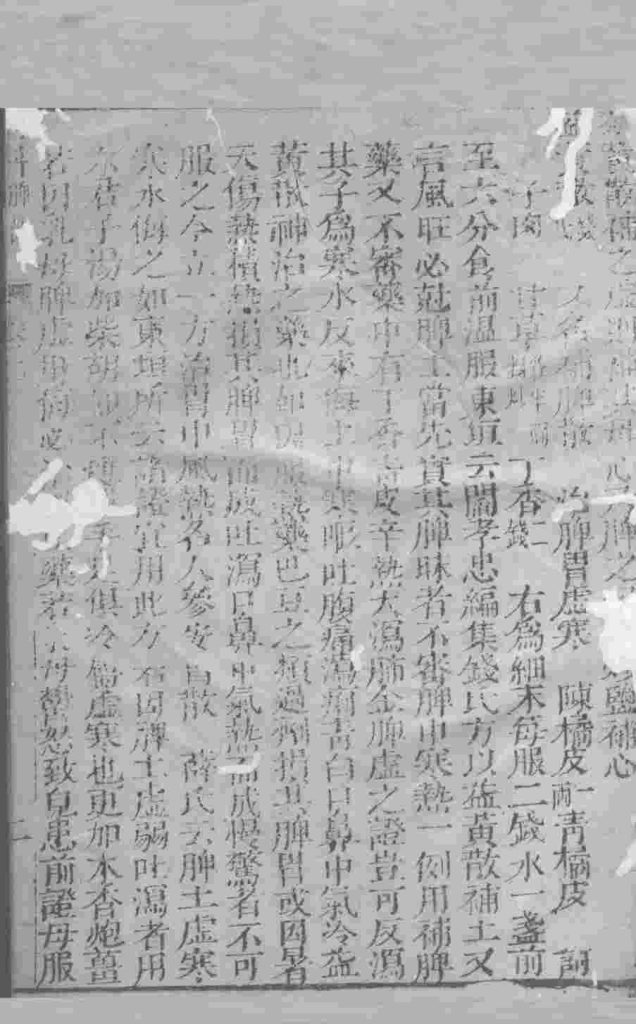 黃散補之虛則補其母心乃脾之 鹽補心
益黃散 又名補脾散 治脾胃虛寒 陳橘皮一兩 青橘皮 訶
子肉 甘草 丁香二錢 右為細末每服二錢水一盞前
至六分食前溫服東垣云閻孝忠編集錢氏方以益黃散補土又
言風旺必尅脾土當先實其脾昧者不審脾中寒熱一例用補脾
藥又不審藥中有丁香青皮辛熱大瀉肺金脾虛之證豈可反瀉
其子為寒水反來侮土中寒嘔吐腹痛瀉痢青白口鼻中氣冷益
黃散神治之藥也如因服熱藥巴豆之類過劑損其脾胃或因暑
天傷熱積熱損其脾胃而成吐瀉口鼻中氣熱而成慢驚者不可
服之今立一方治胃中風熱名人參安 散 薛氏云脾土虛寒
寒水侮之如東垣所云諸證宜用此方若因脾土虛弱吐瀉者用
六君子湯加柴胡如不 手足俱冷屬虛寒也更加木香炮薑
若因乳母脾虛 藥若 母鬱怒致兒患前證母服